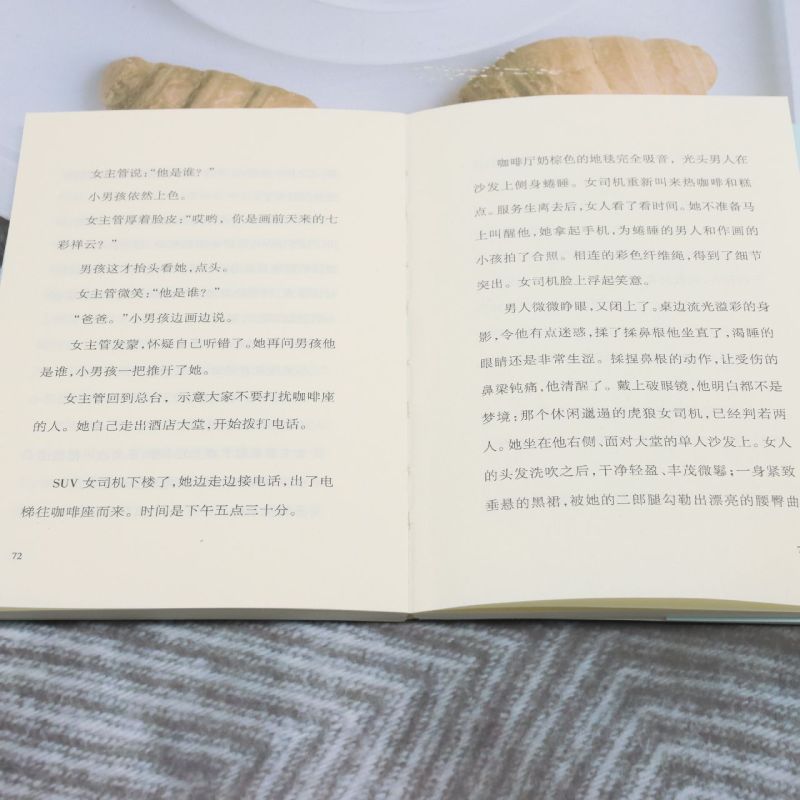 女主管说：“他是谁？”
小男孩依然上色。
女主管厚着脸皮：“哎哟，你是画前天来的七
彩祥云？”
男孩这才抬头看她，点头。
女主管微笑：“他是谁？”
“爸爸。”小男孩边画边说。
女主管发蒙，怀疑自己听错了。她再问男孩他
是谁，小男孩一把推开了她。
女主管回到总台，示意大家不要打扰咖啡座
的人。她自己走出酒店大堂，开始拨打电话。
SUV 女司机下楼了，她边走边接电话，出了电
梯往咖啡座而来。时间是下午五点三十分。
72
咖啡厅奶棕色的地毯完全吸音，光头男人在
沙发上侧身蜷睡。女司机重新叫来热咖啡和糕
点。服务生离去后，女人看了看时间。她不准备马
上叫醒他，她拿起手机，为蜷睡的男人和作画的
小孩拍了合照。相连的彩色纤维绳，得到了细节
突出。女司机脸上浮起笑意。
男人微微睁眼，又闭上了。桌边流光溢彩的身
影，令他有点迷惑，揉了揉鼻根他坐直了，渴睡的
眼睛还是非常生涩。揉捏鼻根的动作，让受伤的
鼻梁钝痛，他清醒了。戴上破眼镜，他明白都不是
梦境：那个休闲邋遢的虎狼女司机，已经判若两
人。她坐在他右侧、面对大堂的单人沙发上。女人
的头发洗吹之后，干净轻盈、丰茂微鬈；一身紧致
垂悬的黑裙，被她的二郎腿勾勒出漂亮的腰臀曲